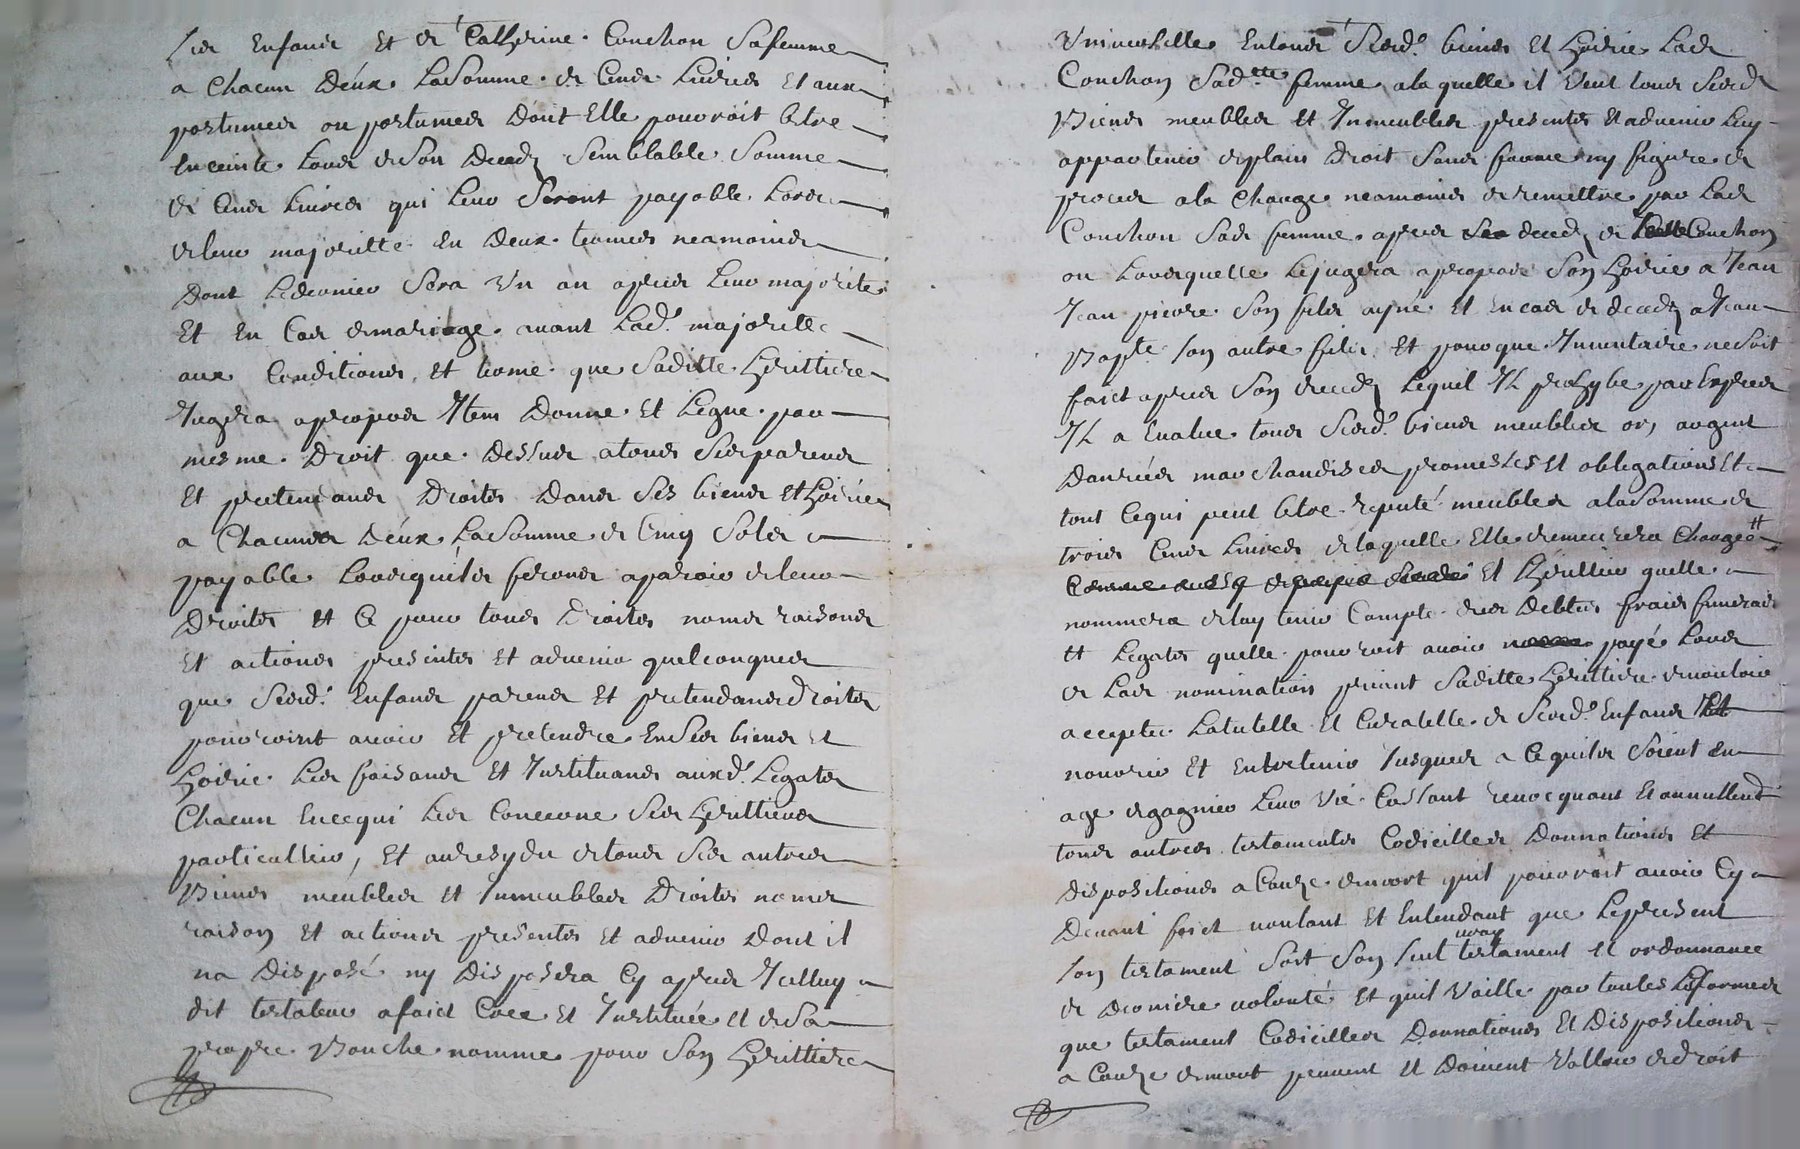 ses Enfants Et de Catherine Couchon Safemme
a Chacun Déux LaSomme de Cents Livres Et aux
postumes ou postumes Dont Elle pouvroit Estre
Enceinte Lors deSon Deceds Semblable Somme
de Cents Livres qui Leur Seront payable Lors
deleur majoritté En Deux termes neamoins
Dont Ledernier Sera Un an apres Leur majorité
Et En Cas demariage avant Lad. majoritté
aux Conditions Et terme que Saditte Herittiere
Jugera apropos Item Donne Et Legue par
mesme Droit que Dessus atous Sesparens
Et pretendans Droits Dans Ses biens Et Hoirie
a Chacuns Déux LaSomme de Cinq Sols
payable Lorsquils feront aparoir deleur
Droits Et Ce pour tous Droits noms raisons
Et actions presentes Et advenir quelconques
que Sesd. Enfans parens Et pretendans droits
pouvroint avoir Et pretendre EnSes biens Et
Hoirie Les faisans Et Instituans auxd. Legats
Chacun Encequi Les Concerne Ses Herittiers
particulliers, Et auresydu detous Ses autres
Biens méubles Et Inmeubles Droits noms
raison Et actions presentes Et advenir Dont il
na Disposé ny Disposera Cy apres Icelluy
dit testateur afaict Crée Et Instituée et deSa
propre Bouche nomme pour Son Herittiere
Universelle Entous Sesd. biens Et Hoirie Lad.
Couchon Sad.tte femme alaquelle il Veut tous Sesd.
Biens meubles Et Inmeubles presentes Etadvenir Luy
appartenir deplain Droit Sans forme ny figure de
proces ala Charge neamoins deremettre par Lad.
Couchon Sad. femme apres deceds de Couchon
ou Lorsquelle Lejugera apropos Son Hoirie a Jean
Jean pierre Son fils ayné Et Encas de deceds aJean
Bapte Son autre fils, Et pourque Inventaire neSoit
faict apres Son deceds Lequel IL prohybe par Expres
IL a Evalué tous Sesd. biens meubles or, argent
Danrées marchandises promesses et obligations Et
tout Cequi peut Estre reputé meubles alaSomme de
trois Cens Livres delaquelle Elle demeurera Chargée
Et Herittier quelle
nommera deluy tenir Compte des Debtes frais funerais
Et Legats quelle pouvroit avoir payé Lors
de Lad. nomination priant Saditte Herittiere devouloir
accepter Latutelle Et Curatelle de Sesd. Enfans
nourir Et Entretenir Jusques a Cequils Soient En
age degagner Leur Vie Cassant revocquant Etannullent
tous autres testamentes Codicilles Donnations Et
Dispositions a Cauze demort quil pouvroit avoir Cy
Devant faict voulant Et Entendant que Lepresent
Son testament Soit Son Seul vray testament et ordonnance
de Derniere volonté Et quil Vaille par toutes Lesformes
que testament Codicilles Donnations Et Dispositions
a Cauze demort peuvent Et Doivent Valloir dedroit